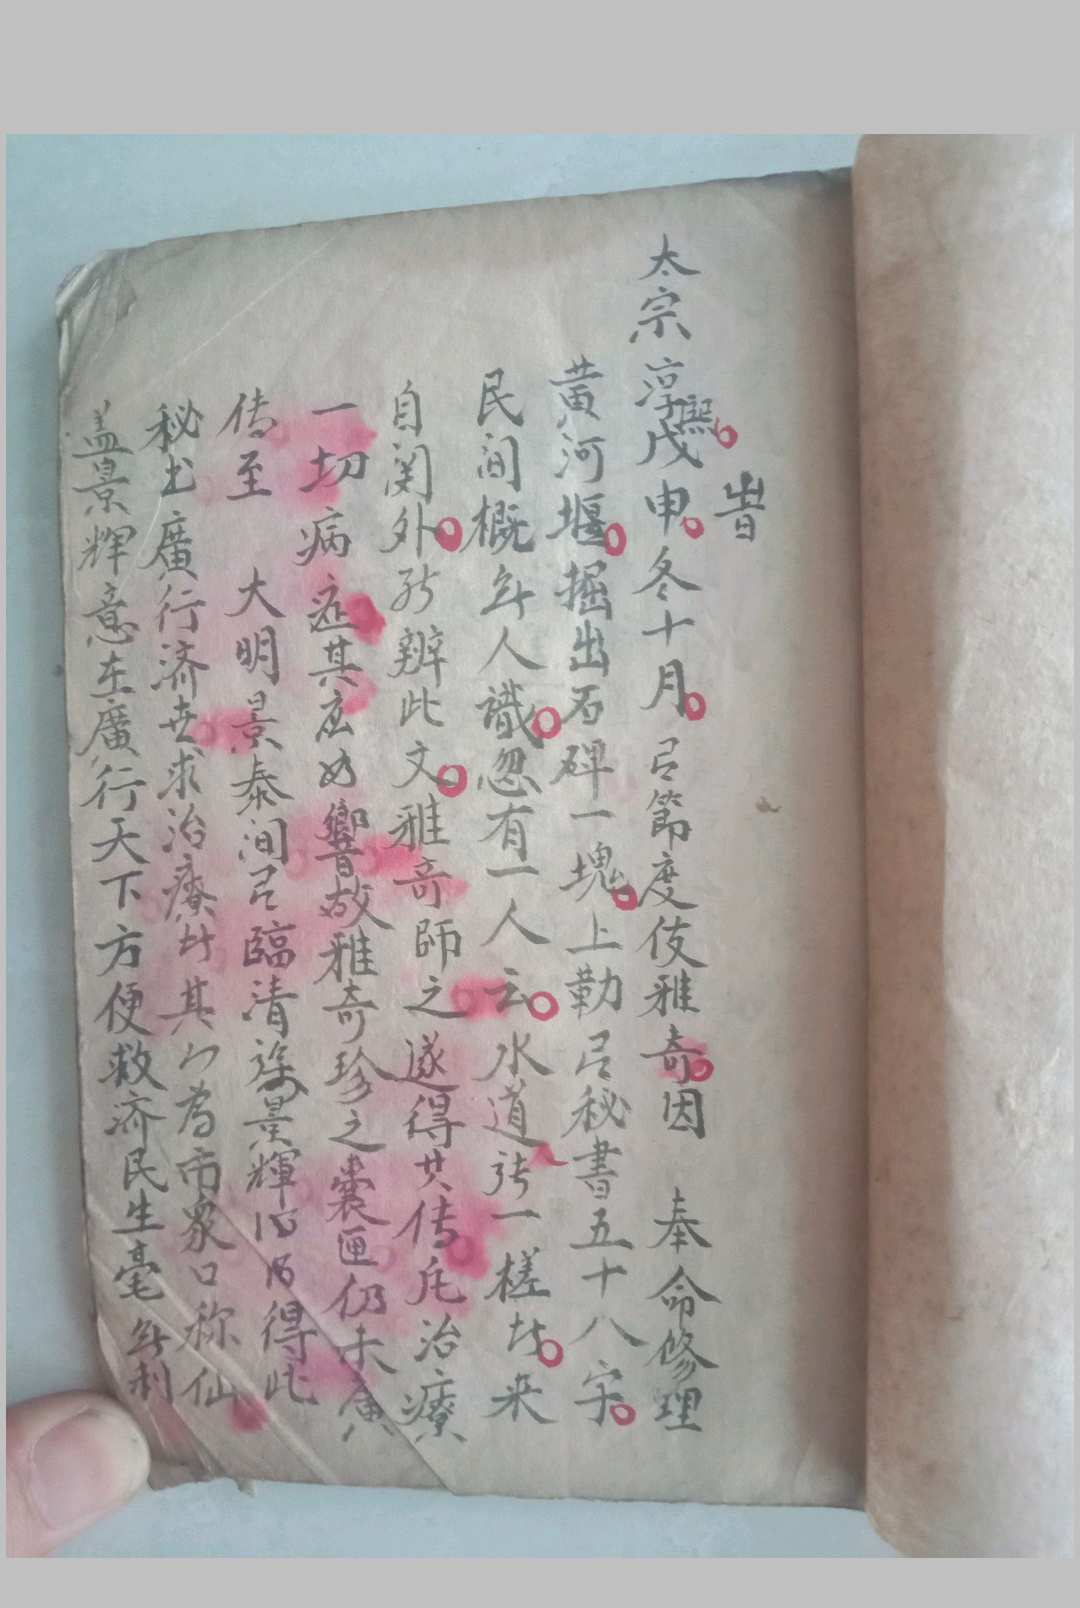 昔
太宗淳熙戊申冬十月有節度使雅奇因 奉命修理
黄河堰掘出石碑一塊上勒有秘書五十八字
民間概無人識忽有一人云水道於一槎於来
自関外能辨此文雅奇師之遂得其传凡治療
一切病症其應如響故雅奇珍之囊匣仍未廣
传至 大明景泰间有臨清 景輝 得此
秘书廣行济世求治療於其门為市衆口称仙
盖景輝意在廣行天下方便救济民生毫無利